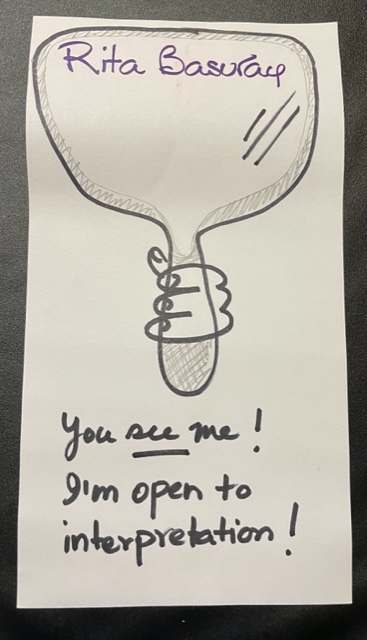 Rita Basuray
You see me!
I'm open to
interpretation!